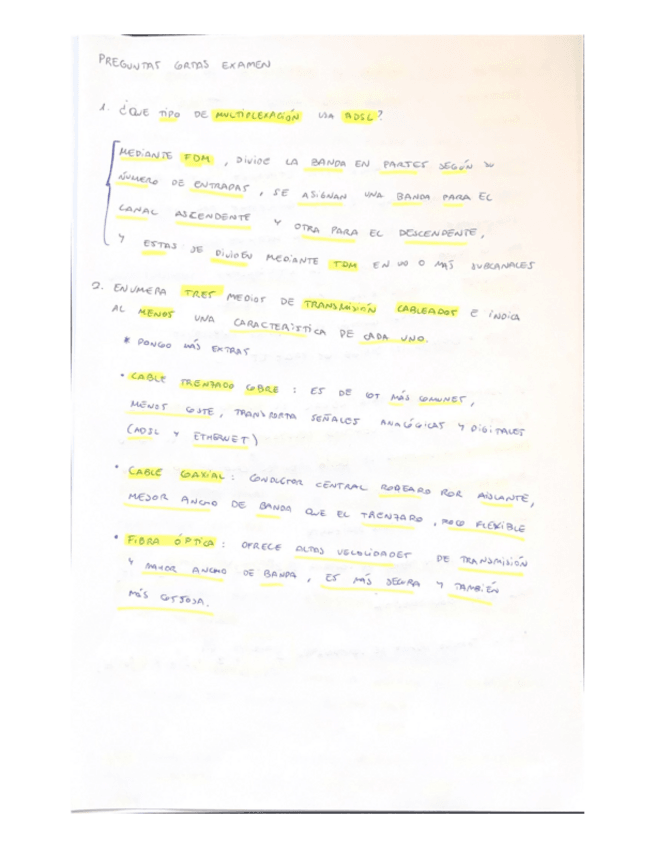 PREGUNTAS CORTAS EXAMEN
1. ¿QUE TIPO DE MULTIPLEXACIÓN USA ADSL?
MEDIANTE FDM, DIVIDE LA BANDA EN PARTES SEGÚN SU
NÚMERO DE ENTRADAS, SE ASIGNAN UNA BANDA PARA EL
CANAL ASCENDENTE Y OTRA PARA EL DESCENDENTE,
Y ESTAS SE DIVIDEN MEDIANTE TDM EN UNO O MÁS SUBCANALES
2. ENUMERA TRES MEDIOS DE TRANSMISIÓN CABLEADOS E INDICA
AL MENOS UNA CARACTERÍSTICA DE CADA UNO.
* PONGO MÁS EXTRAS
• CABLE TRENZADO COBRE: ES DE LOS MÁS COMUNES,
MENOS COSTE, TRANSPORTA SEÑALES ANALÓGICAS Y DIGITALES
(ADSL Y ETHERNET)
• CABLE COAXIAL: CONDUCTOR CENTRAL RODEADO POR AISLANTE,
MEJOR ANCHO DE BANDA QUE EL TRENZADO, POCO FLEXIBLE
• FIBRA ÓPTICA: OFRECE ALTAS VELOCIDADES DE TRANSMISIÓN
Y MAYOR ANCHO DE BANDA, ES MÁS SEGURA Y TAMBIÉN
MÁS COSTOSA.